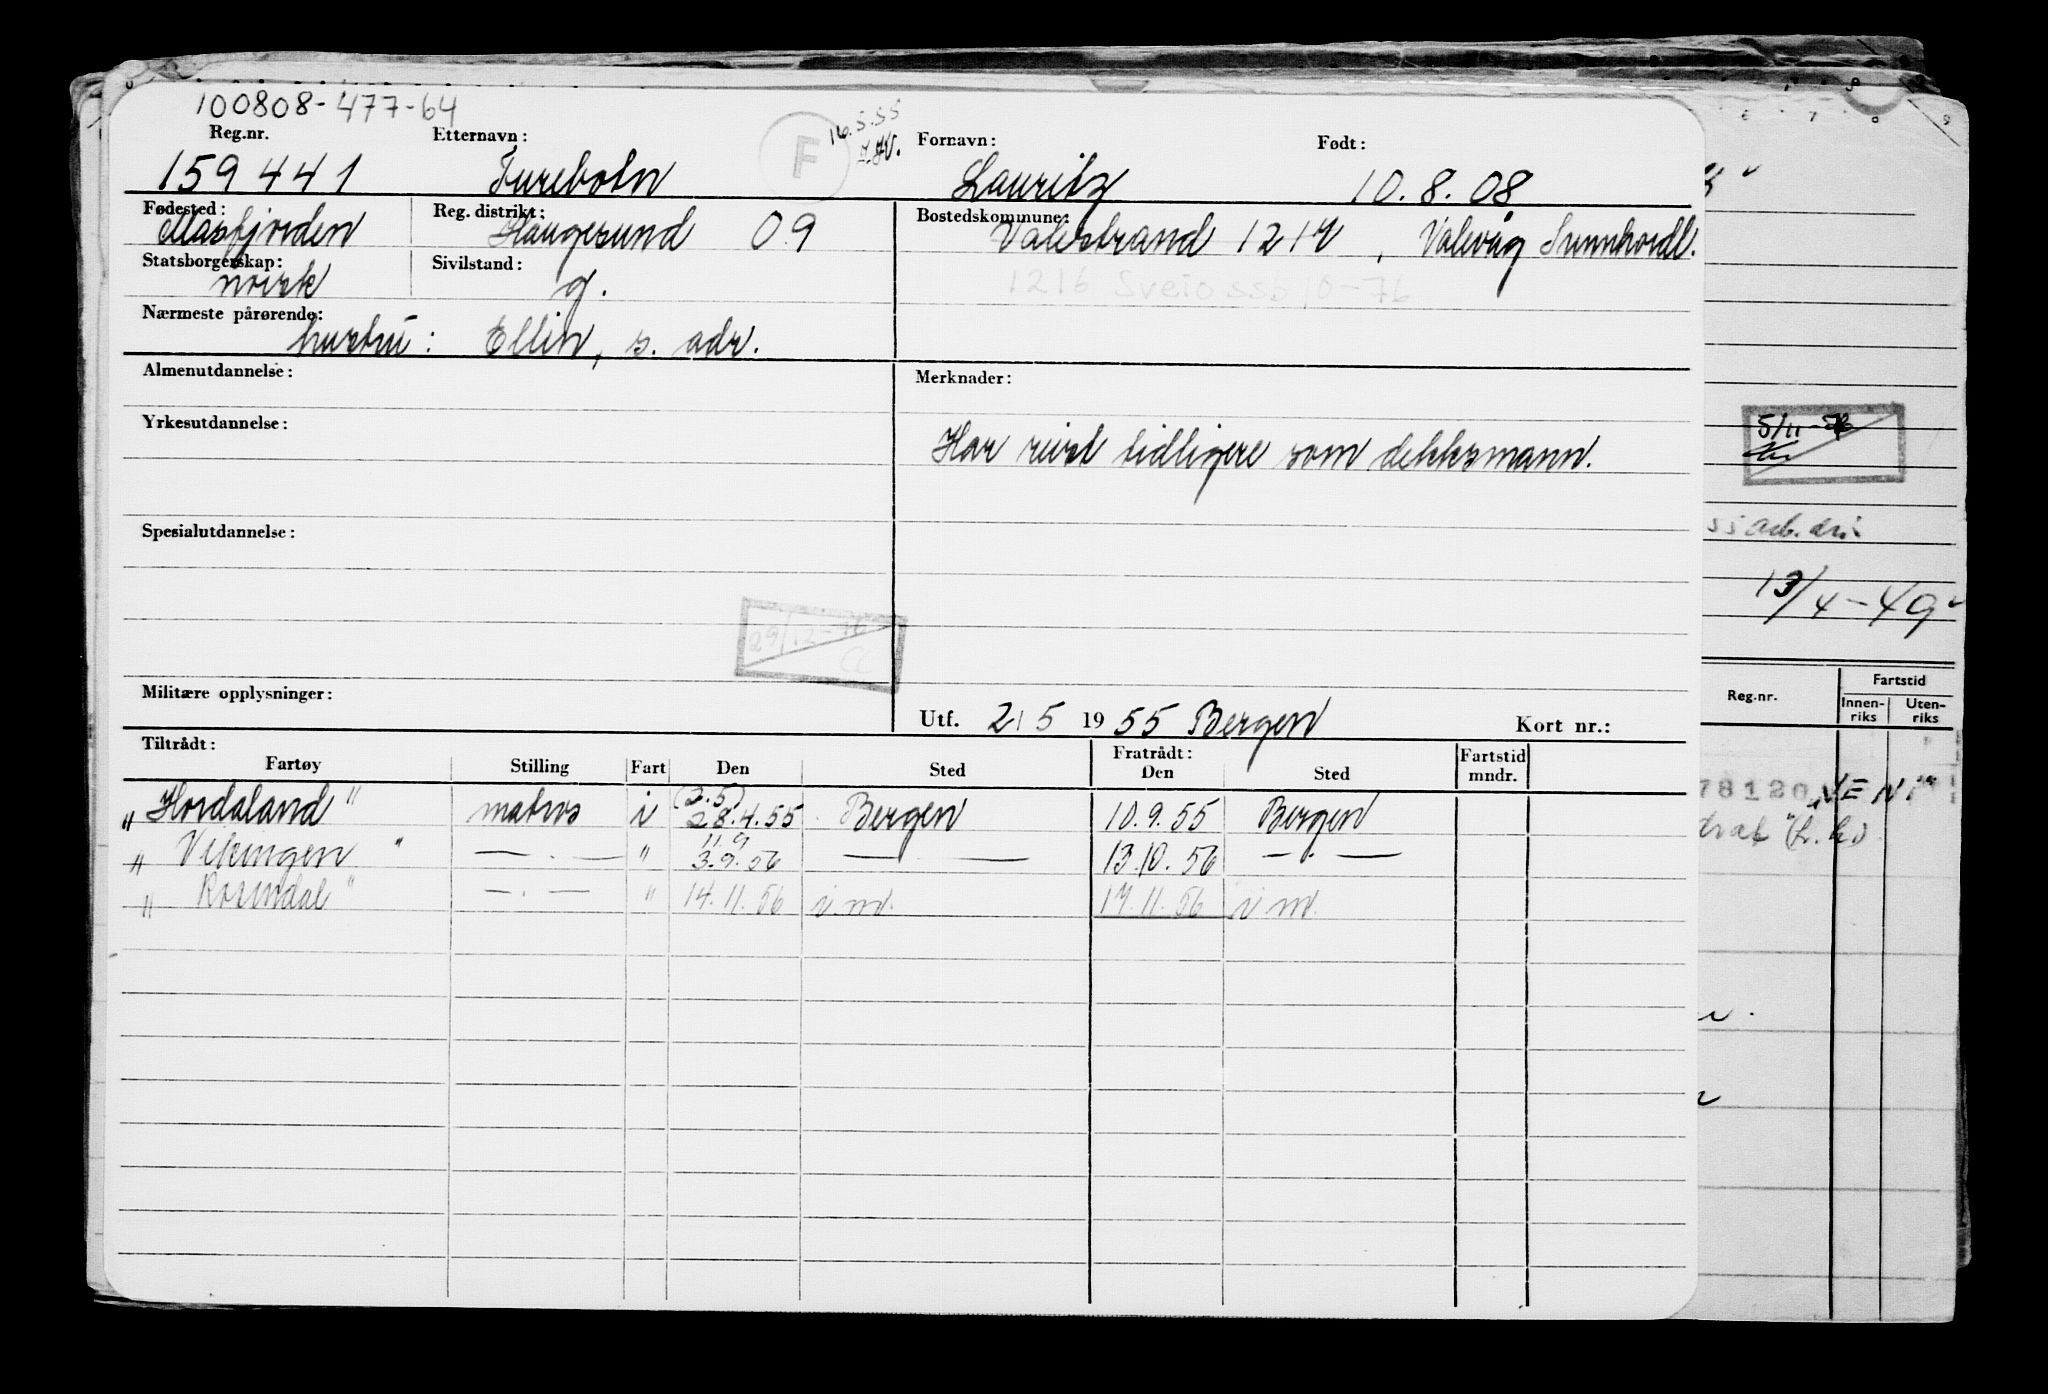 100808-477-64
Reg.nr. Etternavn: Fornavn: Født:
16.5.55
F
159441 Furebotn Lauritz 10.8.08
Fødested: Reg. distrikt: Bostedskommune:
Masfjorden Haugesund 09 Valestrand 1217, Valevåg Sunnhordl.
Statsborgerskap: Sivilstand:
norsk g. 1216 Sveio ssb 10-76
Nærmeste pårørende:
hustru: Ellin, s. adr.
Almenutdannelse: Merknader:
Yrkesutdannelse:
Har reist tidligere som dekksmann.
Spesialutdannelse:
29/12-76
CC
Militære opplysninger:
Utf. 2/5 1955 Bergen Kort nr.:
Tiltrådt: Fratrådt:
Fartøy Stilling Fart Den Sted Den Sted Fartstid mndr.
(2.5)
"Hordaland" matros i 28.4.55 Bergen 10.9.55 Bergen
11.9
"Vikingen" —.— " 3.9.56 — — 13.10.56 —.—
"Rosendal" —.— " 14.11.56 i.m. 17.11.56 i m.
5/11-
arb.
13/4-49
Reg.nr. Fartstid
Innen-riks Uten-riks
78120